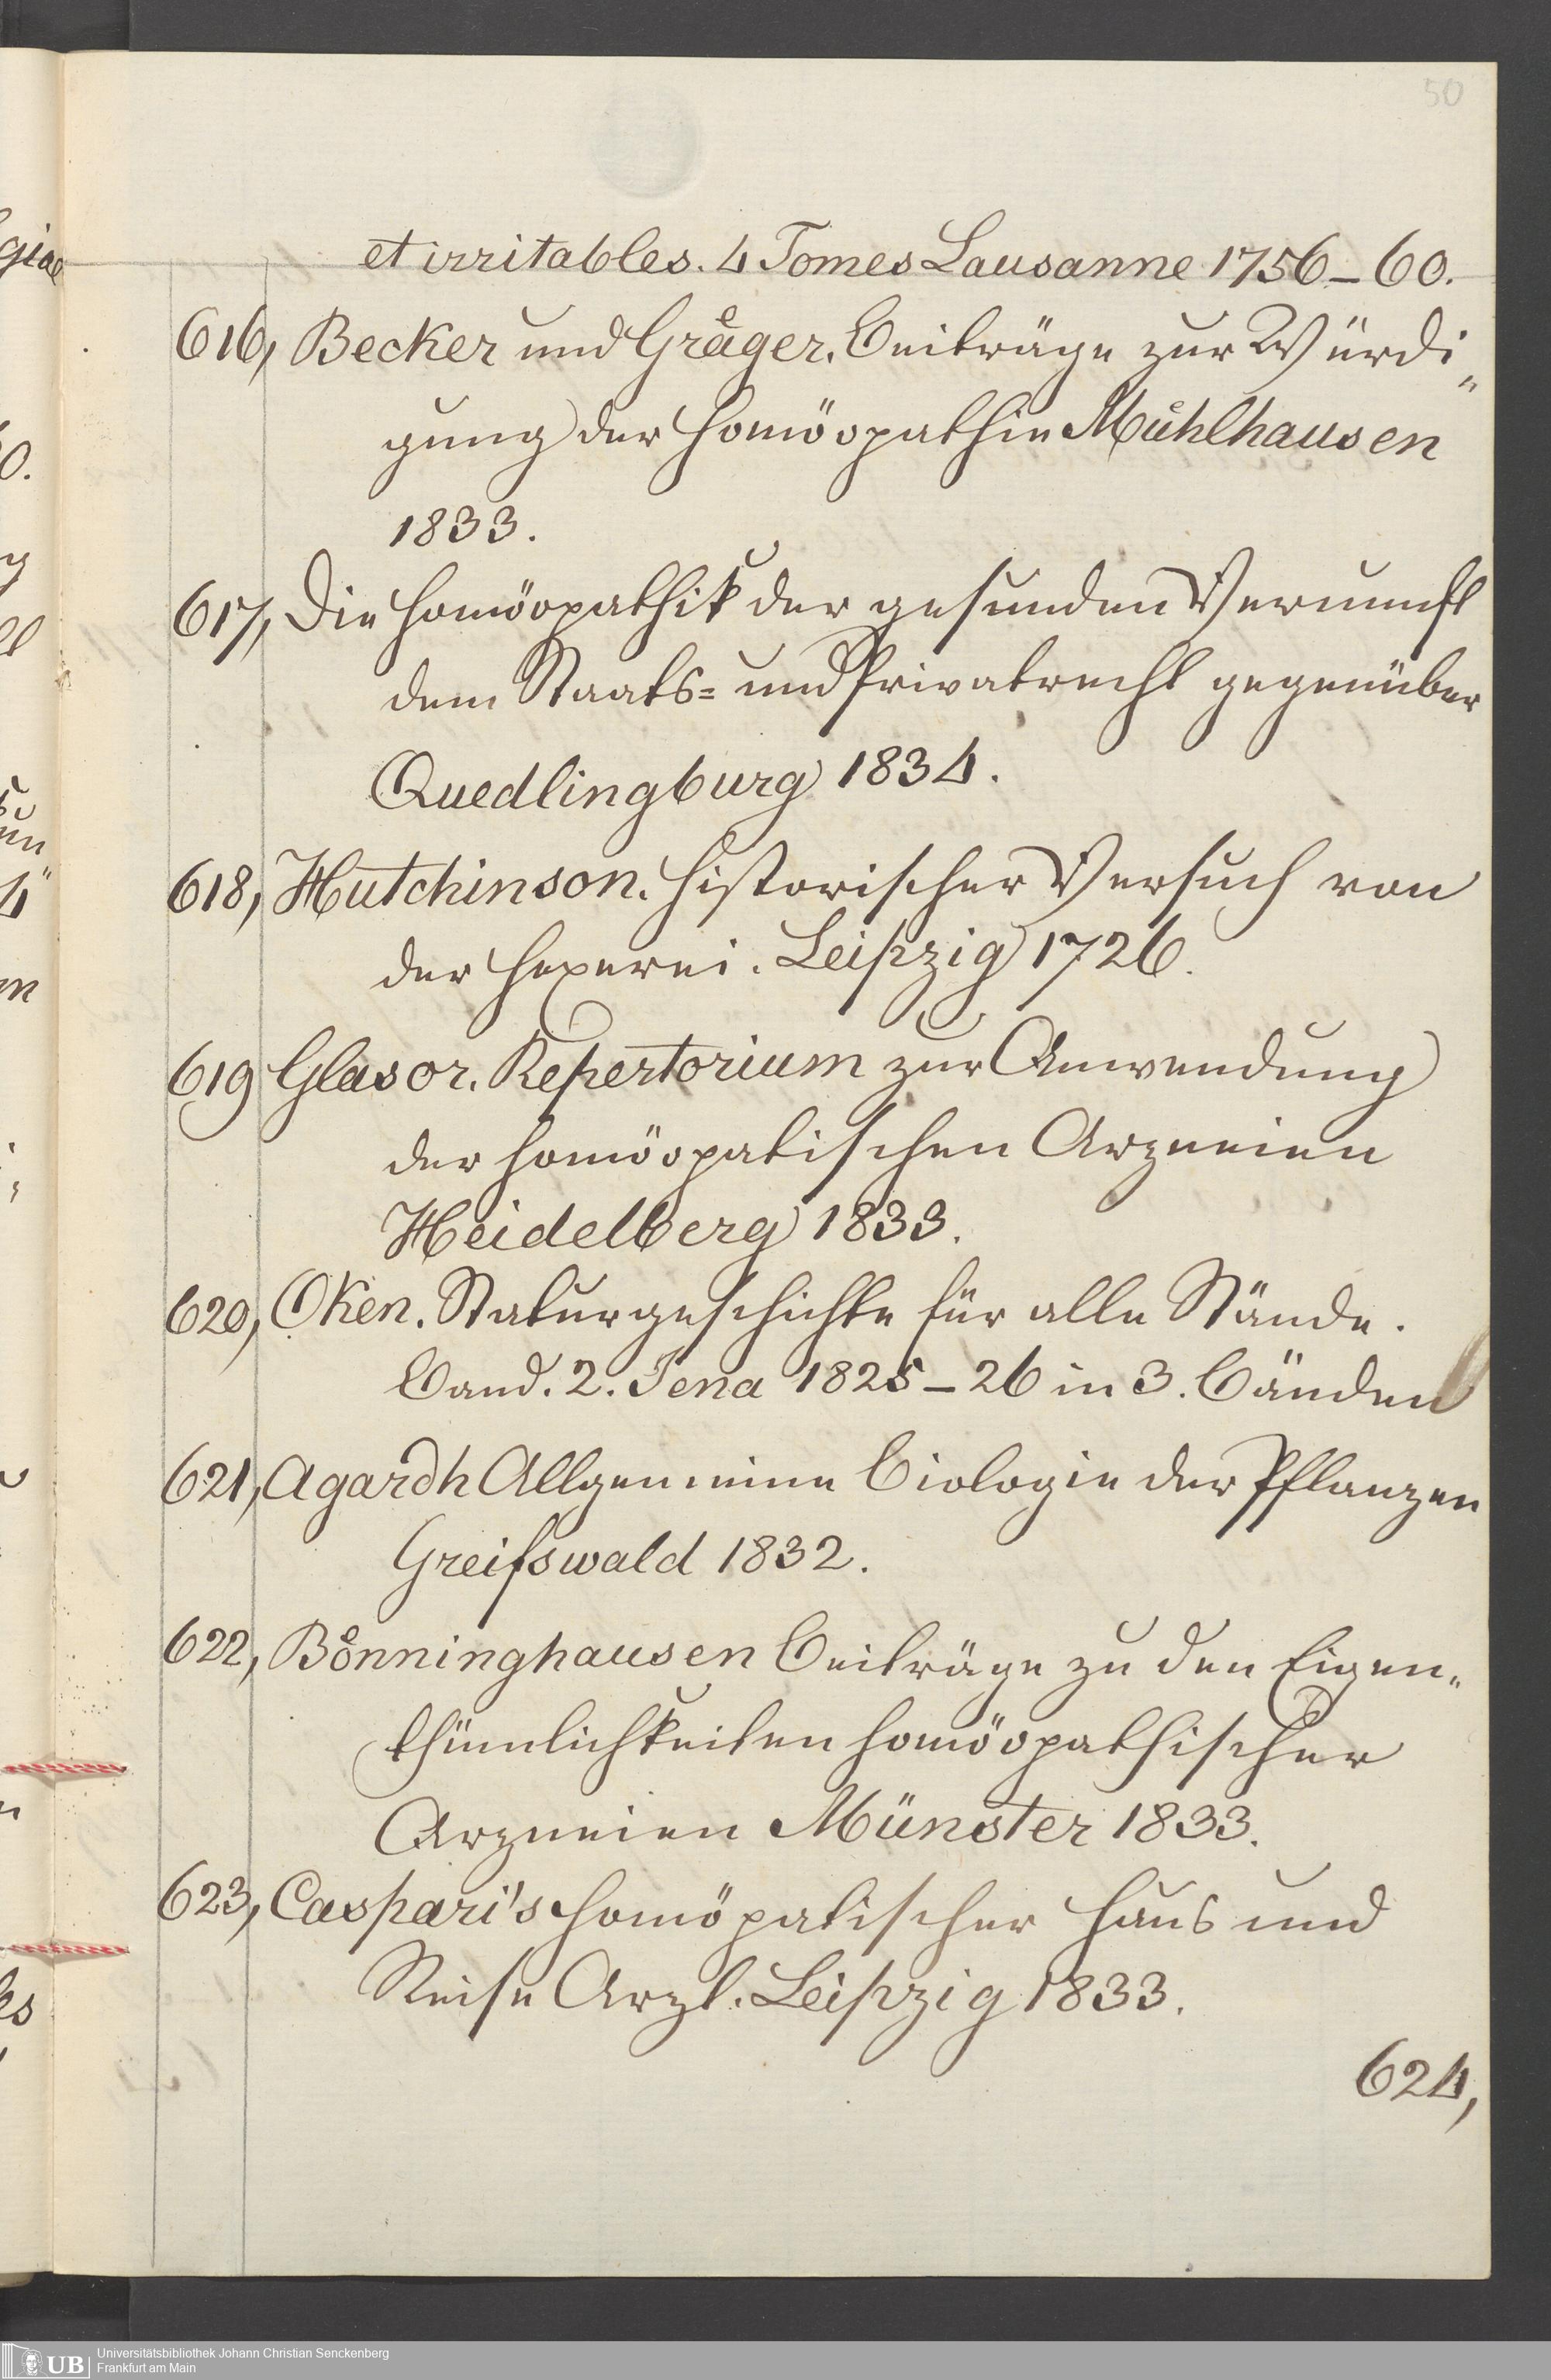 50
et irritables. 4 Tomes Lausanne 1756–60.
616, Becker und Gräger. Beiträge zur Würdi„
gung der Homöopathie Mühlhausen
1833.
617, Die Homöopathik der gesunden Vernunft
dem Staats= und Privatrecht gegenüber
Quedlingburg 1834.
618, Hutchinson. Historischer Versuch von
der Hexerei. Leipzig 1726.
619 Glasor. Repertorium zur Anwendung
der homöopatischen Arzneien
Heidelberg 1833.
620, Oken. Naturgeschichte für alle Stände.
Band. 2. Jena 1825–26 in 3. Bänden
621, Agardh Allgemeine Biologie der Pflanzen
Greifswald 1832.
622, Bönninghausen Beiträge zu den Eigen„
thümlichkeiten homöopathischer
Arzneien Münster 1833.
623, Caspari's homöpatischer Haus und
Reise Arzt. Leipzig 1833.
624,
UB
Universitätsbibliothek Johann Christian Senckenberg
Frankfurt am Main